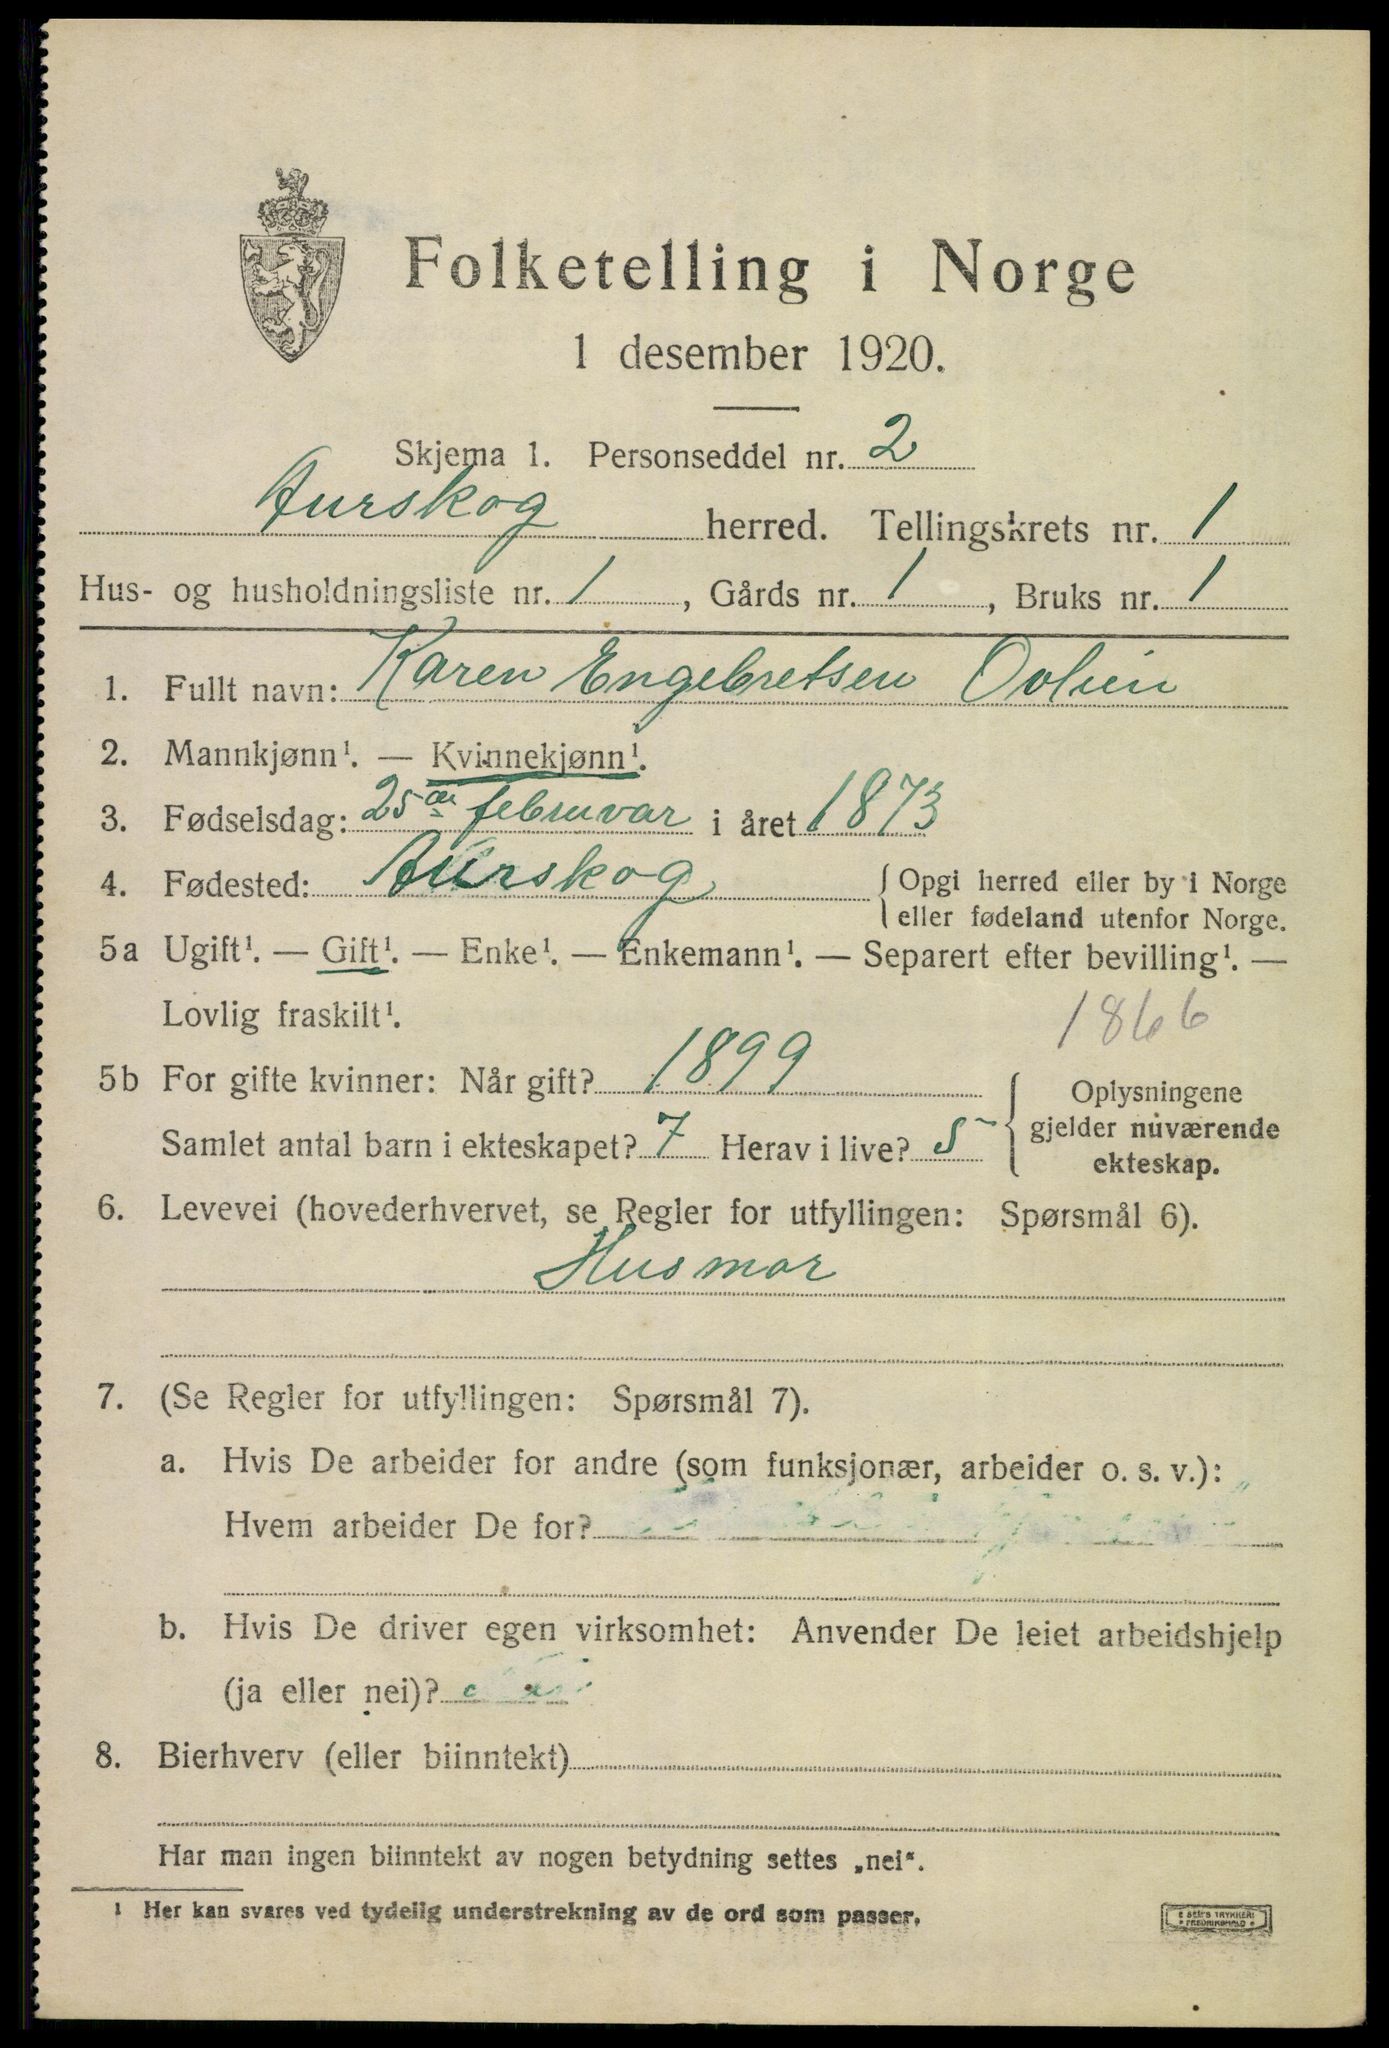 Folketelling i Norge
1 desember 1920.
Skjema 1. Personseddel nr. 2
Aurskog herred. Tellingskrets nr. 1
Hus- og husholdningsliste nr. 1, Gårds nr. 1, Bruks nr. 1
1. Fullt navn: Karen Engebretsen
2. Mannkjønn¹. — Kvinnekjønn¹.
3. Fødselsdag: 25de februar i året 1873
4. Fødested: Aurskog { Opgi herred eller by i Norge
eller fødeland utenfor Norge.
5a Ugift¹. — Gift¹. — Enke¹. — Enkemann¹. — Separert efter bevilling¹. —
Lovlig fraskilt¹. 1866
5b For gifte kvinner: Når gift? 1899
Samlet antal barn i ekteskapet? 7 Herav i live? 5
{ Oplysningene
gjelder nuværende
ekteskap.
6. Levevei (hovederhvervet, se Regler for utfyllingen: Spørsmål 6).
Husmor
7. (Se Regler for utfyllingen: Spørsmål 7).
a. Hvis De arbeider for andre (som funksjonær, arbeider o. s. v.):
Hvem arbeider De for?
b. Hvis De driver egen virksomhet: Anvender De leiet arbeidshjelp
(ja eller nei)?
8. Bierhverv (eller biinntekt)
Har man ingen biinntekt av nogen betydning settes „nei“.
¹ Her kan svares ved tydelig understrekning av de ord som passer.